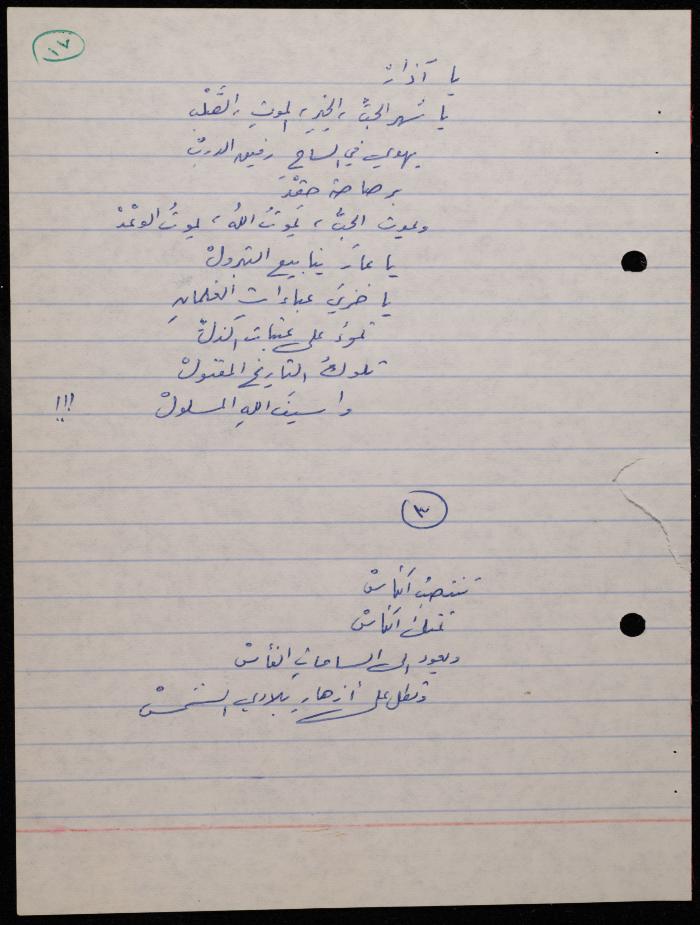 ١٧
يا آذارْ
يا شهر الحبِّ، الخيرِ، الموتِ، الصَّلْبِ
يهوي في الساح رفيق الدربْ
برصاصة حقْدَ
ويموت الحبُّ، يموتُ اللهُ، يموتُ الوعْدْ
يا عارَ ينابيع البترولْ
يا خزيَ عباءات الغلمانِ
تموءُ على عتبات الذلّْ
تلوكُ التاريخ المقتولْ
وا سيفَ اللهِ المسلولْ !!!
٣
تنتصبُ الكأسْ
تمتلئ الكأسْ
ويعود الى الساحاتِ الفأسْ
وتطل على أزهار بلادي الشمسْ